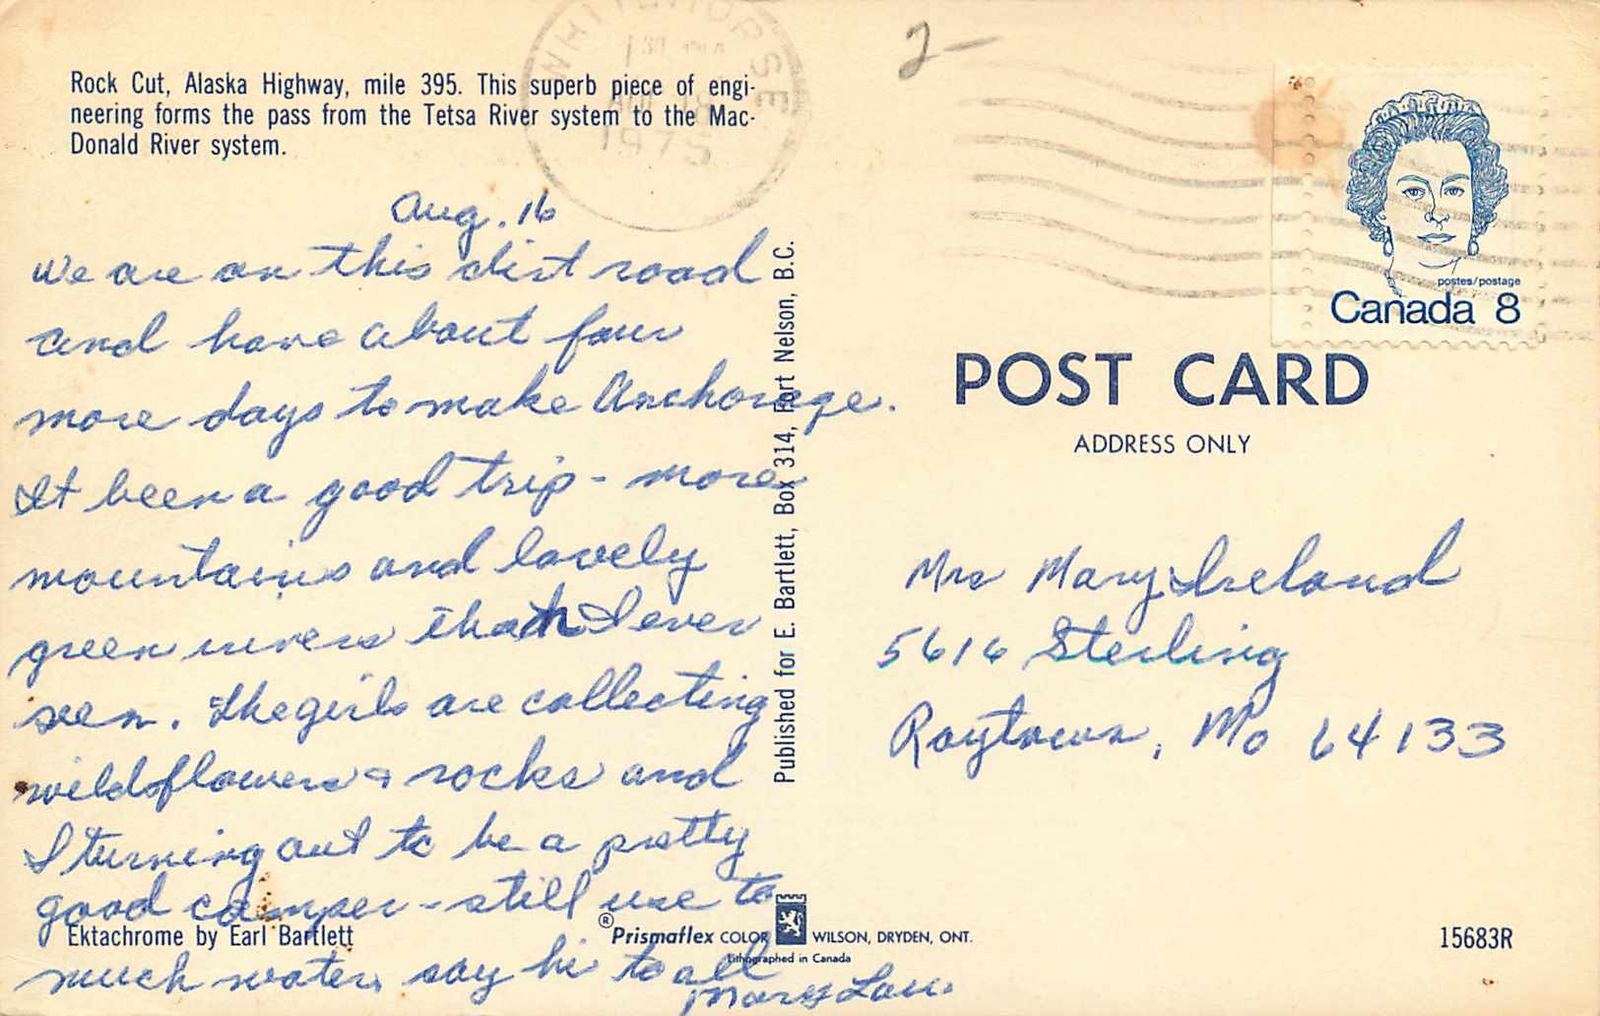 Rock Cut, Alaska Highway, mile 395. This superb piece of engi-
neering forms the pass from the Tetsa River system to the Mac-
Donald River system.
WHITEHORSE
1975
2-
postes/postage
Canada 8
POST CARD
ADDRESS ONLY
Aug. 16
We are on this dirt road
and have about four
more days to make Anchorage.
It been a good trip - more
mountains and lovely
green rivers than I ever
seen. The girls are collecting
wildflowers & rocks and
I turning out to be a pretty
good camper - still use to
much water, say hi to all
Mary Lou.
Published for E. Bartlett, Box 314, Fort Nelson, B.C.
Mrs Mary Ireland
5616 Sterling
Raytown, Mo 64133
Ektachrome by Earl Bartlett
® Prismaflex COLOR WILSON, DRYDEN, ONT.
Lithographed in Canada
15683R